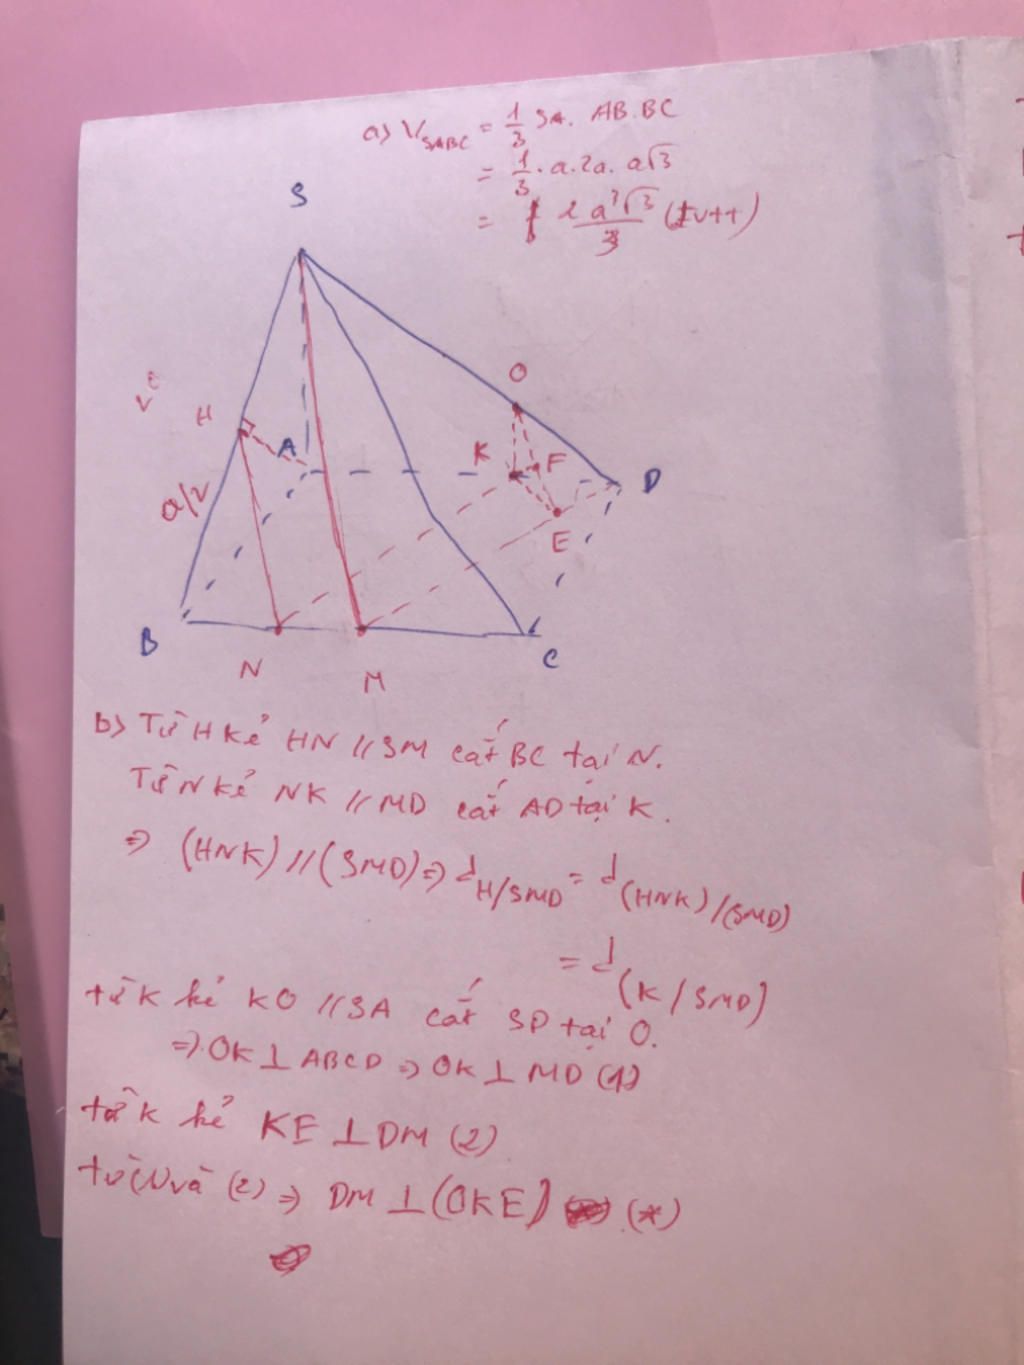 a) V_SABC = 1/3 SA. AB.BC
= 1/3 . a.2a. a√3
= 2a³√3/3 (đvtt)
S
O
H
A
K
F
D
a/2
E
B
C
N
M
b) Từ H kẻ HN // SM cắt BC tại N.
Từ N kẻ NK // MD cắt AD tại K.
⇒ (HNK) // (SMD) ⇒ d_H/SMD = d_(HNK)/(SMD)
= d_(K/SMD)
từ K kẻ KO // SA cắt SD tại O.
⇒ OK ⊥ ABCD ⇒ OK ⊥ MD (1)
từ K kẻ KE ⊥ DM (2)
từ (1) và (2) ⇒ DM ⊥ (OKE) (*)